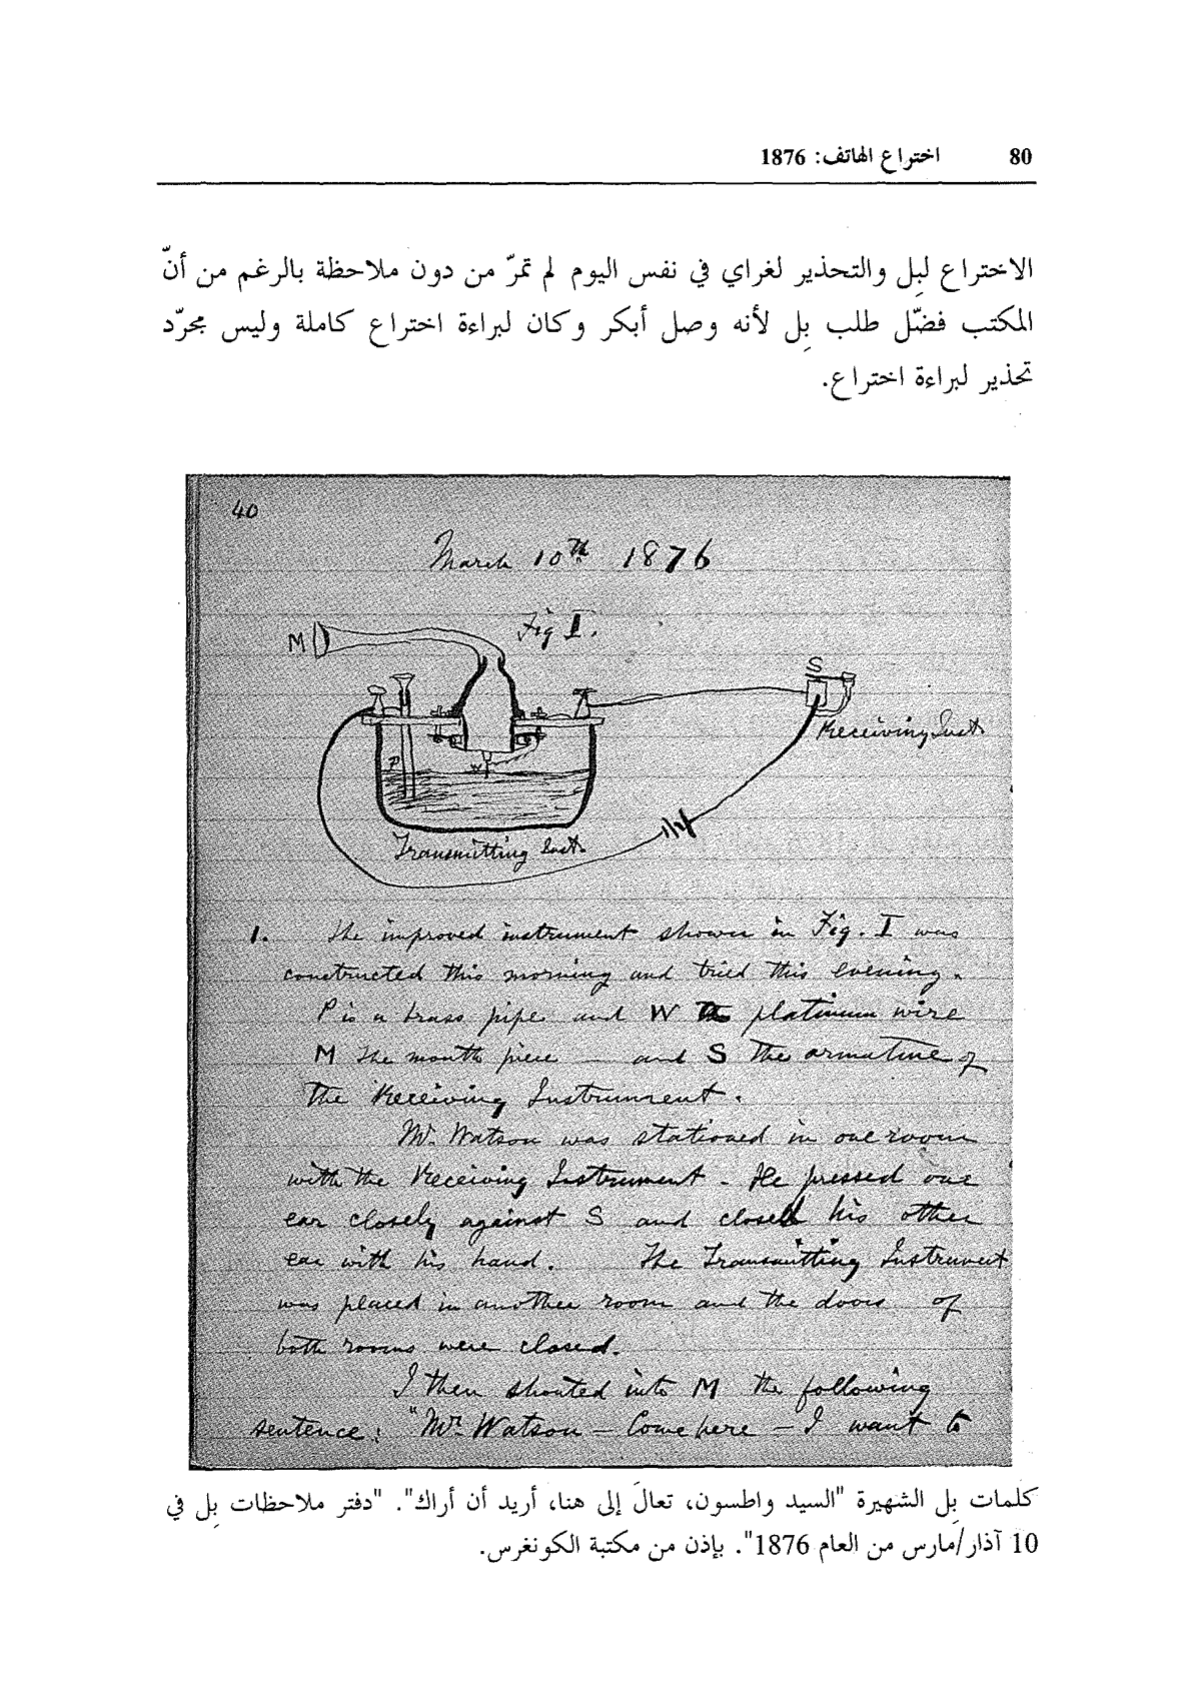 80 اختراع الهاتف: 1876
الاختراع لبِل والتحذير لغراي في نفس اليوم لم تمرّ من دون ملاحظة بالرغم من أنّ
المكتب فضّل طلب بِل لأنه وصل أبكر وكان لبراءة اختراع كاملة وليس مجرّد
تحذير لبراءة اختراع.
40
March 10th 1876
Fig I.
M
S
Receiving Inst
P
W
Transmitting Inst.
1. The improved instrument shown in Fig. I was
constructed this morning and tried this evening.
P is a brass pipe and W the platinum wire
M the mouth piece — and S the armature of
the Receiving Instrument.
Mr. Watson was stationed in one room
with the Receiving Instrument. He pressed one
ear closely against S and closed his other
ear with his hand. The Transmitting Instrument
was placed in another room and the doors of
both rooms were closed.
I then shouted into M the following
sentence: "Mr. Watson — Come here — I want to
كلمات بِل الشهيرة "السيد واطسون، تعالَ إلى هنا، أريد أن أراك". "دفتر ملاحظات بِل في
10 آذار/مارس من العام 1876". بإذن من مكتبة الكونغرس.